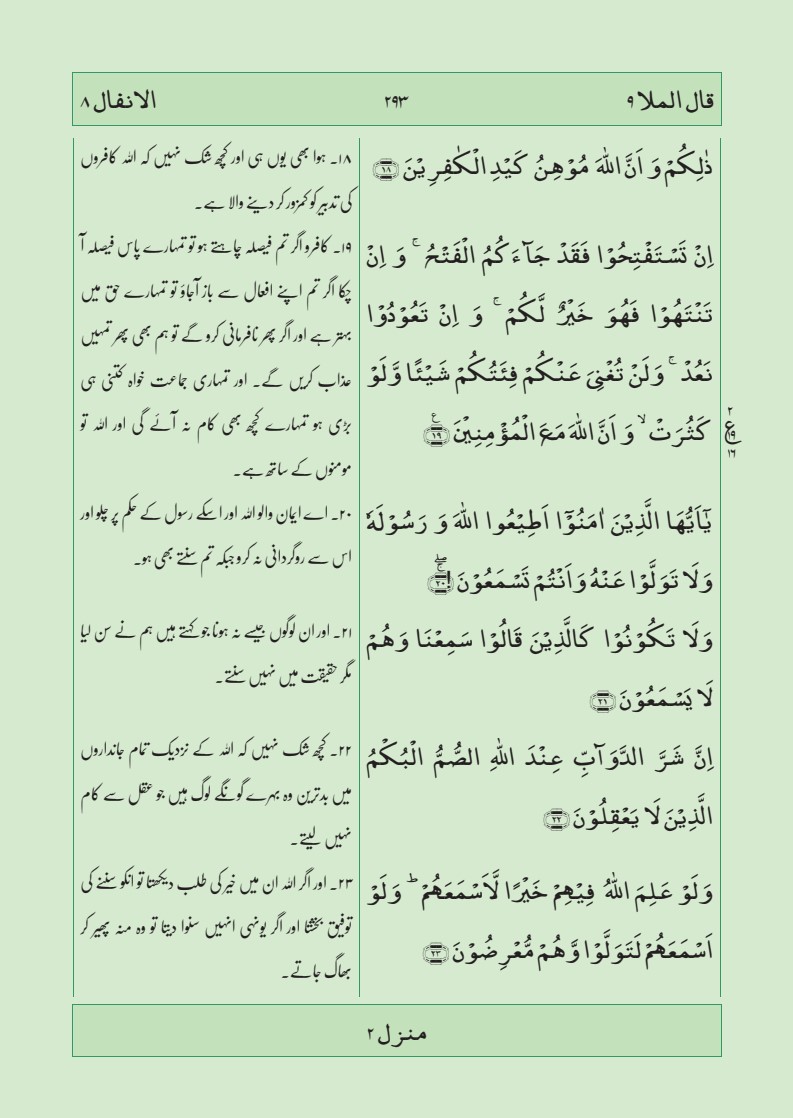 قال الملا ۹
۲۹۳
الانفال ۸
ذٰلِكُمْ وَ اَنَّ اللّٰهَ مُوْهِنُ كَيْدِ الْكٰفِرِيْنَ ۝۱۸
اِنْ تَسْتَفْتِحُوْا فَقَدْ جَآءَكُمُ الْفَتْحُ ۚ وَ اِنْ
تَنْتَهُوْا فَهُوَ خَيْرٌ لَّكُمْ ۚ وَ اِنْ تَعُوْدُوْا
نَعُدْ ۚ وَلَنْ تُغْنِيَ عَنْكُمْ فِئَتُكُمْ شَيْئًا وَّلَوْ
كَثُرَتْ ۙ وَ اَنَّ اللّٰهَ مَعَ الْمُؤْمِنِيْنَ ۝۱۹
۲
ع
۱۹
۱۶
يٰۤاَيُّهَا الَّذِيْنَ اٰمَنُوْۤا اَطِيْعُوا اللّٰهَ وَ رَسُوْلَهٗ
وَلَا تَوَلَّوْا عَنْهُ وَ اَنْتُمْ تَسْمَعُوْنَ ۝۲۰
وَلَا تَكُوْنُوْا كَالَّذِيْنَ قَالُوْا سَمِعْنَا وَهُمْ
لَا يَسْمَعُوْنَ ۝۲۱
اِنَّ شَرَّ الدَّوَآبِّ عِنْدَ اللّٰهِ الصُّمُّ الْبُكْمُ
الَّذِيْنَ لَا يَعْقِلُوْنَ ۝۲۲
وَلَوْ عَلِمَ اللّٰهُ فِيْهِمْ خَيْرًا لَّاَسْمَعَهُمْ ؕ وَلَوْ
اَسْمَعَهُمْ لَتَوَلَّوْا وَّهُمْ مُّعْرِضُوْنَ ۝۲۳
۱۸۔ ہوا بھی یوں ہی اور کچھ شک نہیں کہ اللہ کافروں
کی تدبیر کو کمزور کر دینے والا ہے۔
۱۹۔ کافرو اگر تم فیصلہ چاہتے ہو تو تمہارے پاس فیصلہ آ
چکا اگر تم اپنے افعال سے باز آجاؤ تو تمہارے حق میں
بہتر ہے اور اگر پھر نافرمانی کرو گے تو ہم بھی پھر تمہیں
عذاب کریں گے۔ اور تمہاری جماعت خواہ کتنی ہی
بڑی ہو تمہارے کچھ بھی کام نہ آئے گی اور اللہ تو
مومنوں کے ساتھ ہے۔
۲۰۔ اے ایمان والو اللہ اور اسکے رسول کے حکم پر چلو اور
اس سے روگردانی نہ کرو جبکہ تم سنتے بھی ہو۔
۲۱۔ اور ان لوگوں جیسے نہ ہونا جو کہتے ہیں ہم نے سن لیا
مگر حقیقت میں نہیں سنتے۔
۲۲۔ کچھ شک نہیں کہ اللہ کے نزدیک تمام جانداروں
میں بدترین وہ بہرے گونگے لوگ ہیں جو عقل سے کام
نہیں لیتے۔
۲۳۔ اور اگر اللہ ان میں خیر کی طلب دیکھتا تو انکو سننے کی
توفیق بخشتا اور اگر یونہی انہیں سنوا دیتا تو وہ منہ پھیر کر
بھاگ جاتے۔
منزل ۲